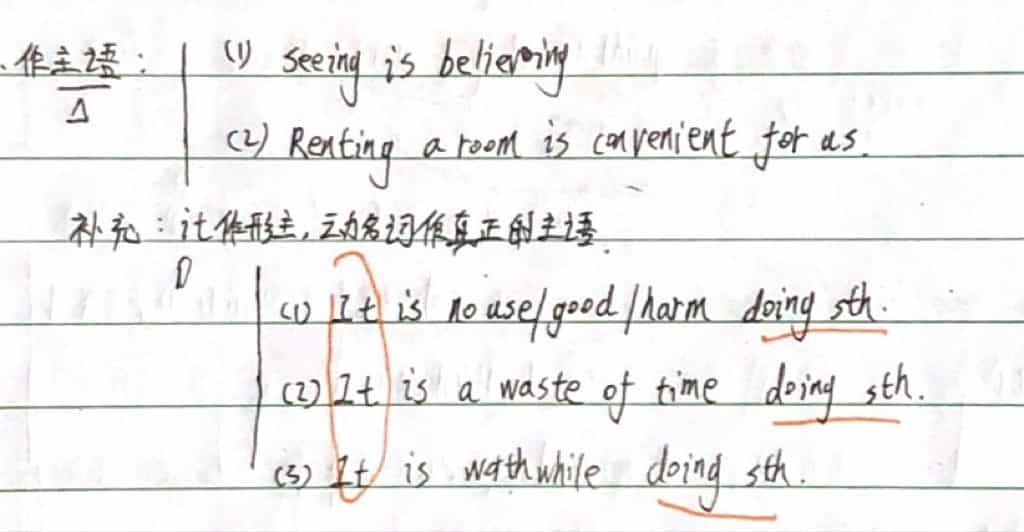 、作主语: (1) seeing is believing
(2) Renting a room is convenient for us.
补充:it作形主,动名词作真正的主语.
(1) It is no use/good/harm doing sth.
(2) It is a waste of time doing sth.
(3) It is wathwhile doing sth.